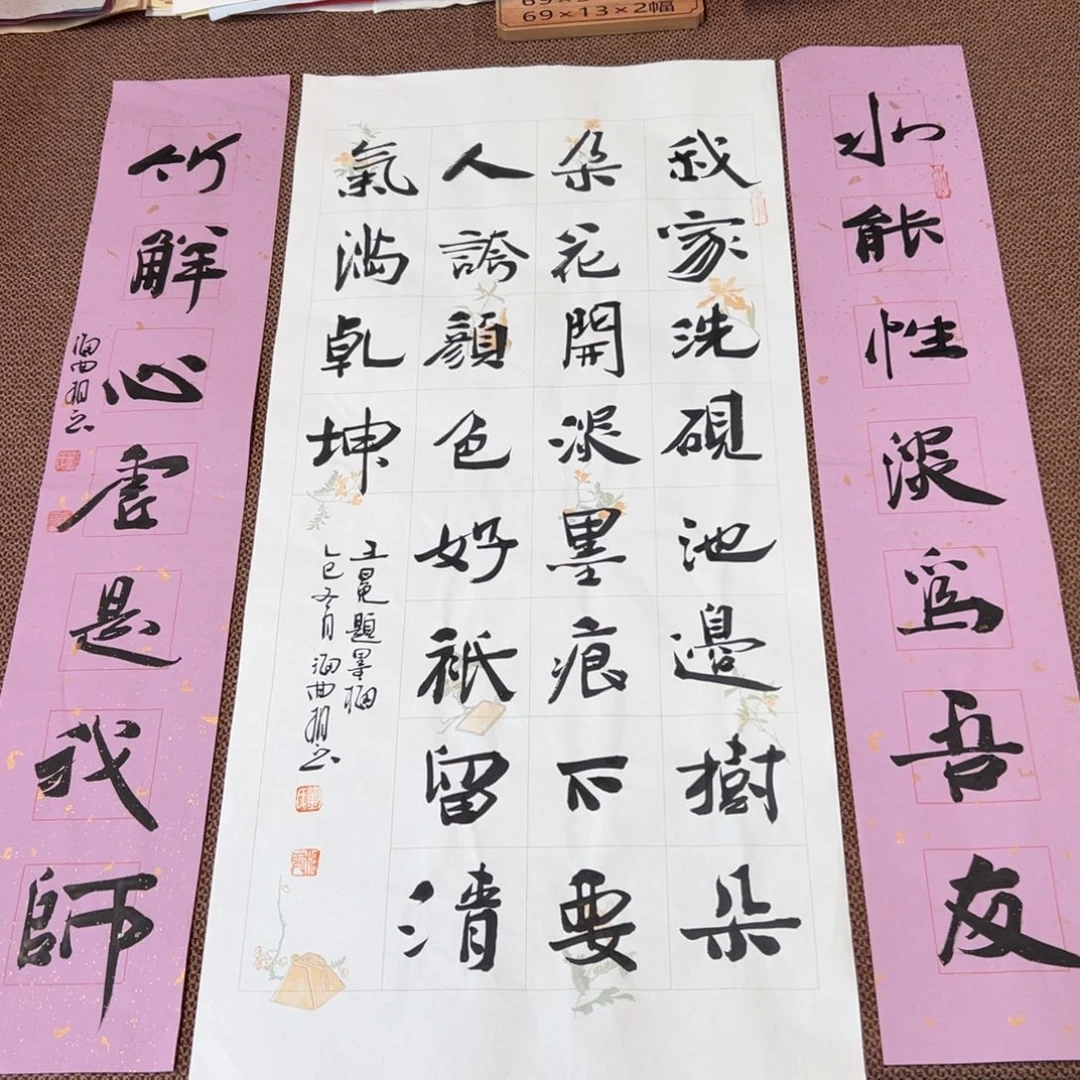 69×13×2幅
水能性淡爲吾友
我家洗硯池邊樹朵
朵花開淡墨痕不要
人誇顏色好祇留清
氣滿乾坤
王冕題墨梅
乙巳冬月
竹解心虛是我師